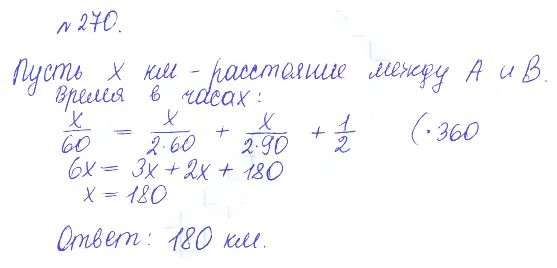 №270.
Пусть x км - расстояние между A и B.
Время в часах:
x/60 = x/2·60 + x/2·90 + 1/2 (·360
6x = 3x + 2x + 180
x = 180
Ответ: 180 км.